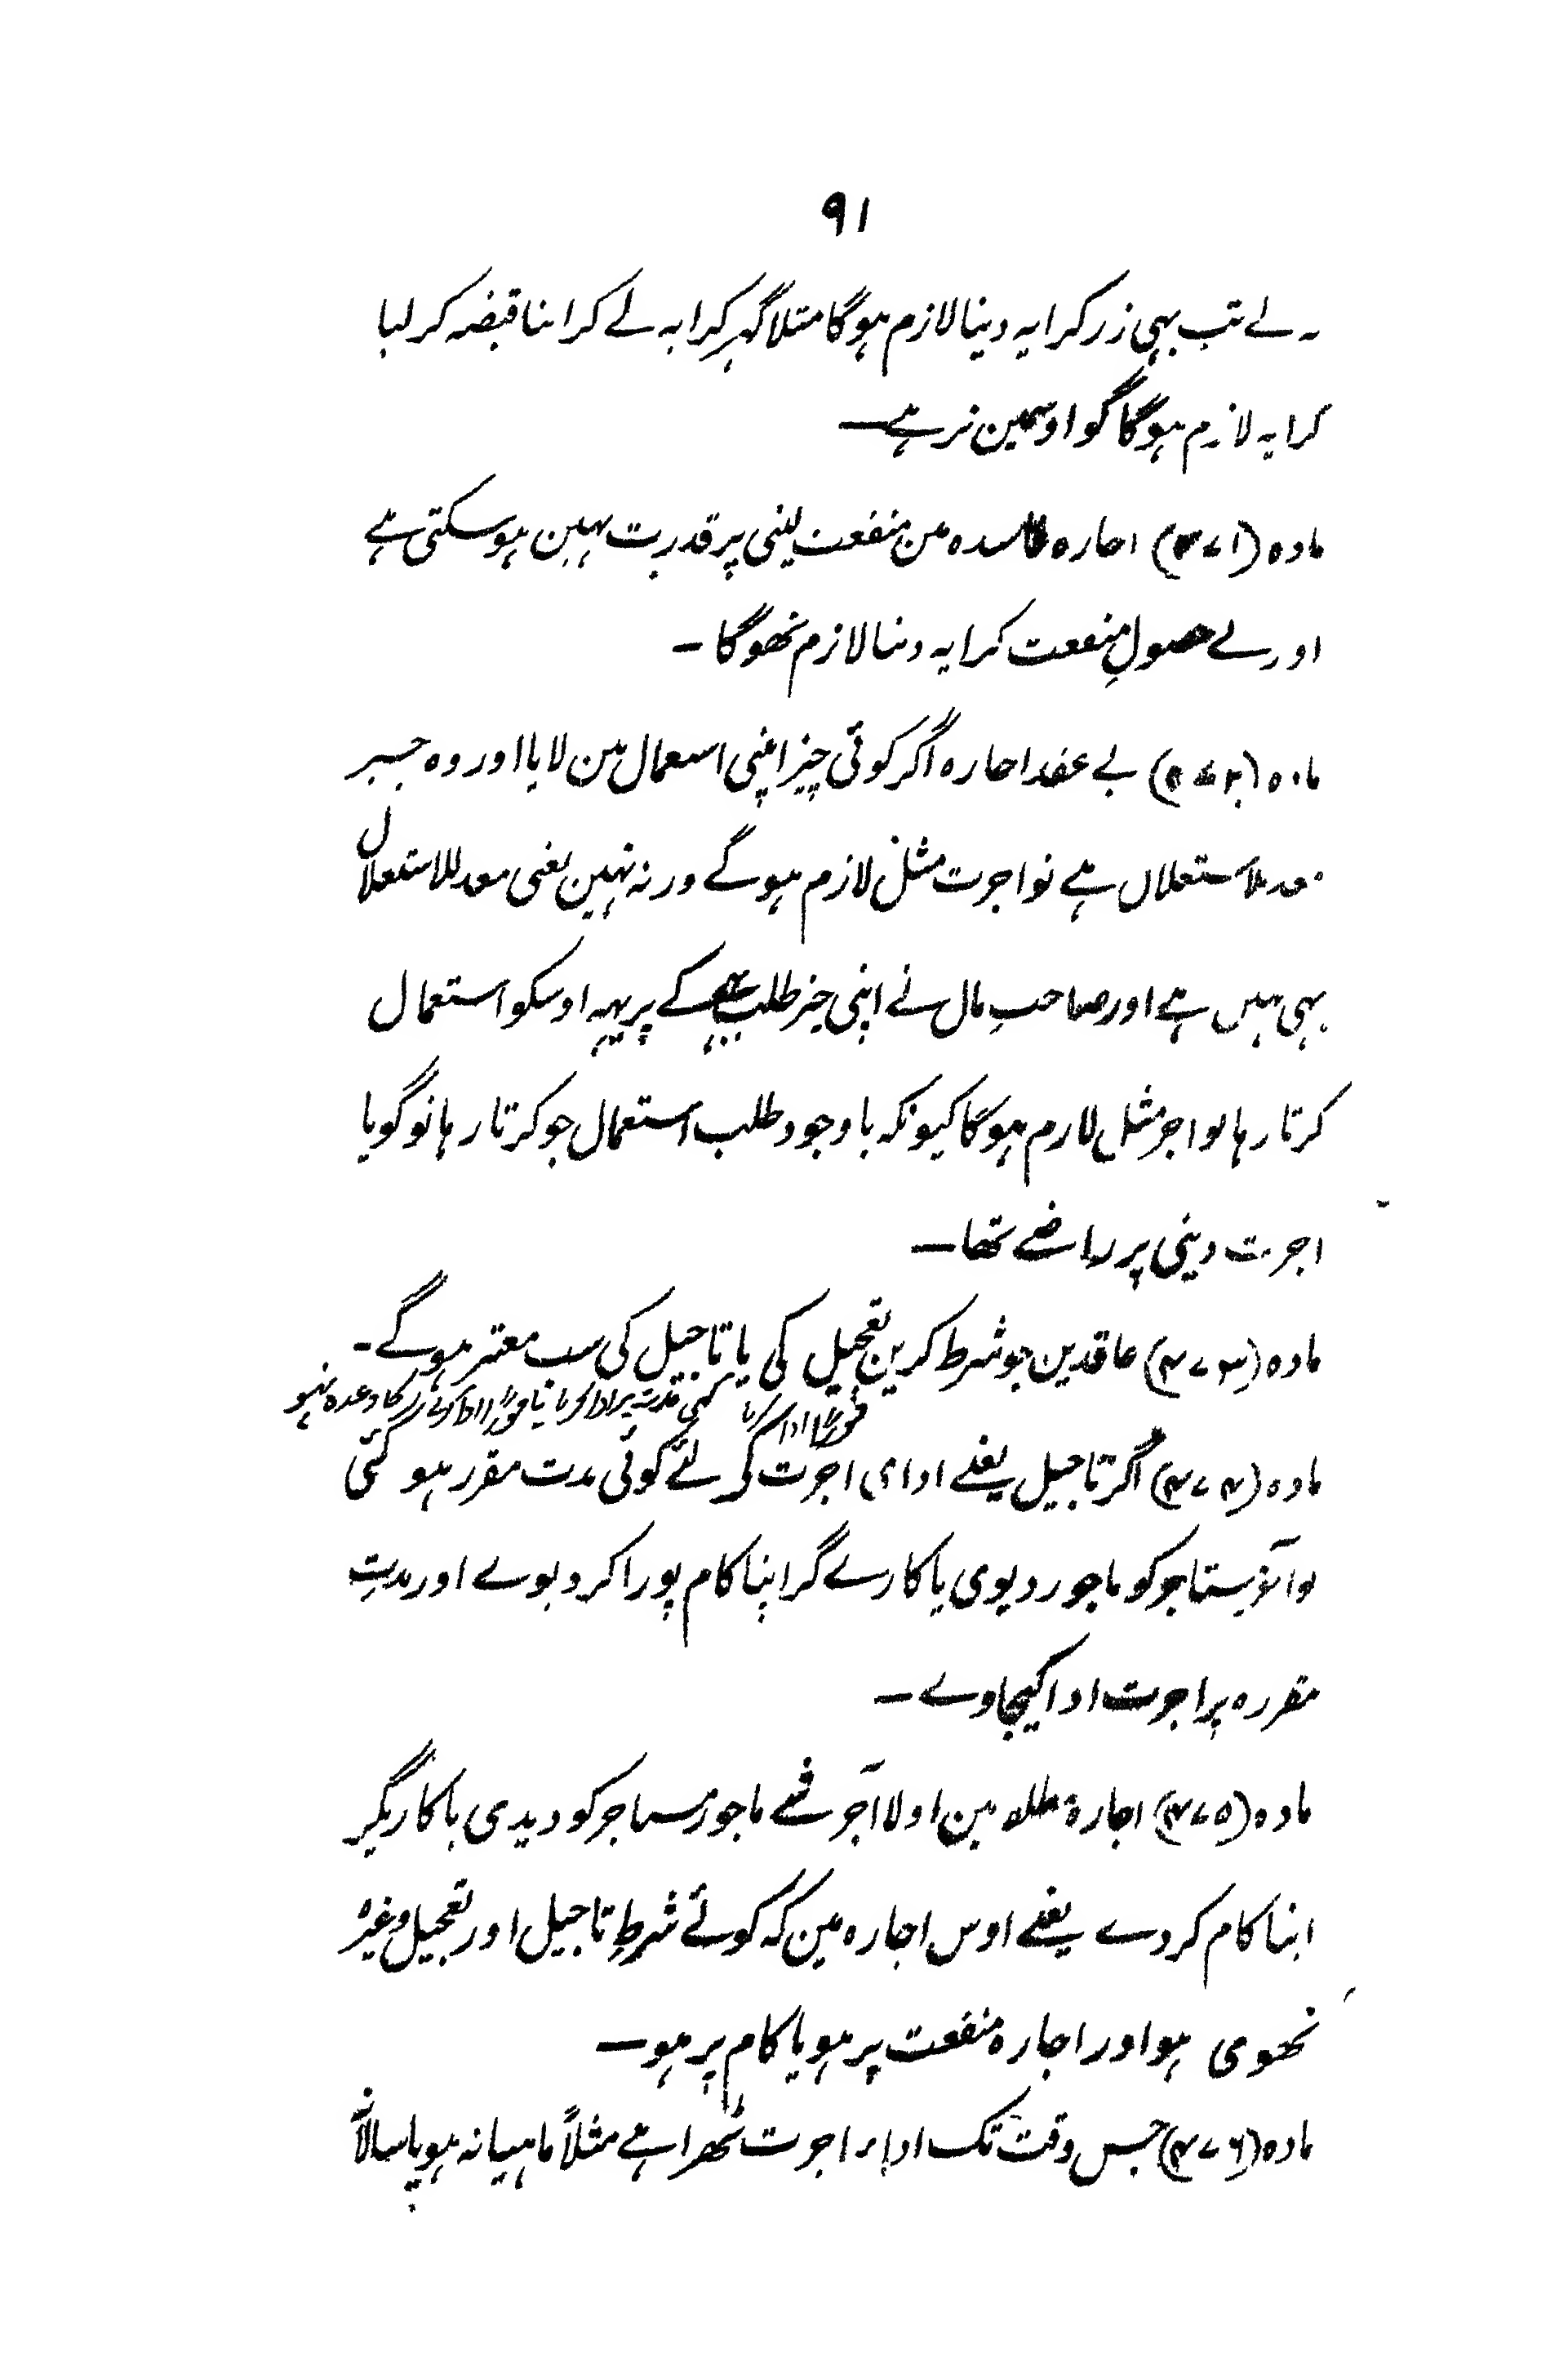 ۹۱
نہ لے تب بہی زر کرایہ دینا لازم ہوگا مثلا گہر کرایہ لے کر اپنا قبضہ کر لیا
کرایہ لازم ہوگا گو اوسمین نرہے—
مادہ (۴۷۱) اجارہ فاسدہ مین منفعت لینی پر قدرت نہین ہو سکتی ہے
اور بے حصولِ منفعت کرایہ دینا لازم نھوگا -
مادہ (۴۷۲) بے عقد اجارہ اگر کوئی چیز اپنی استعمال مین لایا اور وہ چیز
معد للاستغلال ہے تو اجرت مثل لازم ہوگے ورنہ نہین یعنی معد للاستغلال
بہی نہیں ہے اور صاحبِ مال نے اپنی چیز طلب کے پر یہہ اوسکو استعمال
کرتا رہا تو اجر مثل لازم ہوگا کیونکہ باوجود طلب استعمال جو کرتا رہا تو گویا
اجرت دینی پر راضے تھا—
مادہ (۴۷۳) عاقدین جو شرط کرین تعجیل کی یا تاجیل کی سب معتبر ہوگے-
فوراً ادا کرنا کسی مدت پر ادا کرنا یا فوراً ادا کرنے کا وعدہ نہو
مادہ (۴۷۴) اگر تاجیل یعنے ادای اجرت کے لئے کوئی مدت مقرر ہو گئی
تو آجر مستاجر کو ماجور دیوی یا کاریگر اپنا کام پورا کر دیوے اور مدتِ
مقررہ پر اجرت ادا کیجاوے -
مادہ (۴۷۵) اجارۂ مطلقہ مین اولا آجر شے ماجور مستاجر کو دیدی یا کاریگر
اپنا کام کردے یعنے اوس اجارہ مین کہ کوئے شرطِ تاجیل اور تعجیل وغیرہ
نھوی ہو اور اجارہ منفعت پر ہو یا کام پر ہو—
مادہ (۴۷۶) جس وقت تک اداے اجرت ٹھرا ہے مثلاً ماہیانہ ہو یا سالانہ